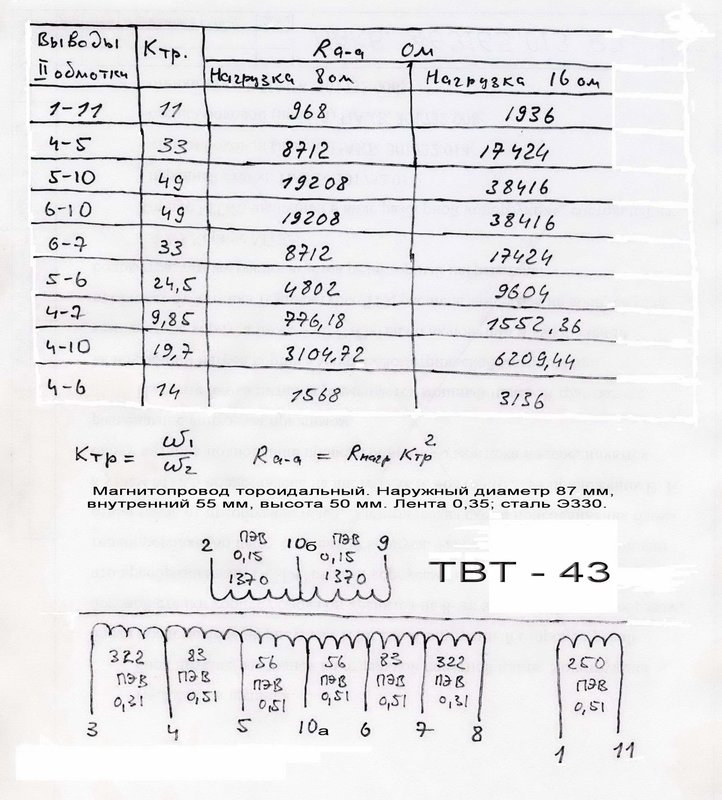 Выводы II обмотки | Ктр. | Ra-a Ом
Нагрузка 8 ом | Нагрузка 16 ом
1-11 | 11 | 968 | 1936
4-5 | 33 | 8712 | 17424
5-10 | 49 | 19208 | 38416
6-10 | 49 | 19208 | 38416
6-7 | 33 | 8712 | 17424
5-6 | 24,5 | 4802 | 9604
4-7 | 9,85 | 776,18 | 1552,36
4-10 | 19,7 | 3104,72 | 6209,44
4-6 | 14 | 1568 | 3136
Ктр = ω1/ω2 Ra-a = Rнагр Ктр²
Магнитопровод тороидальный. Наружный диаметр 87 мм,
внутренний 55 мм, высота 50 мм. Лента 0,35; сталь Э330.
2 ПЭВ 10б ПЭВ 9
0,15 0,15
1370 1370
ТВТ - 43
322 83 56 56 83 322 250
ПЭВ ПЭВ ПЭВ ПЭВ ПЭВ ПЭВ ПЭВ
0,31 0,51 0,51 0,51 0,51 0,31 0,51
3 4 5 10а 6 7 8 1 11